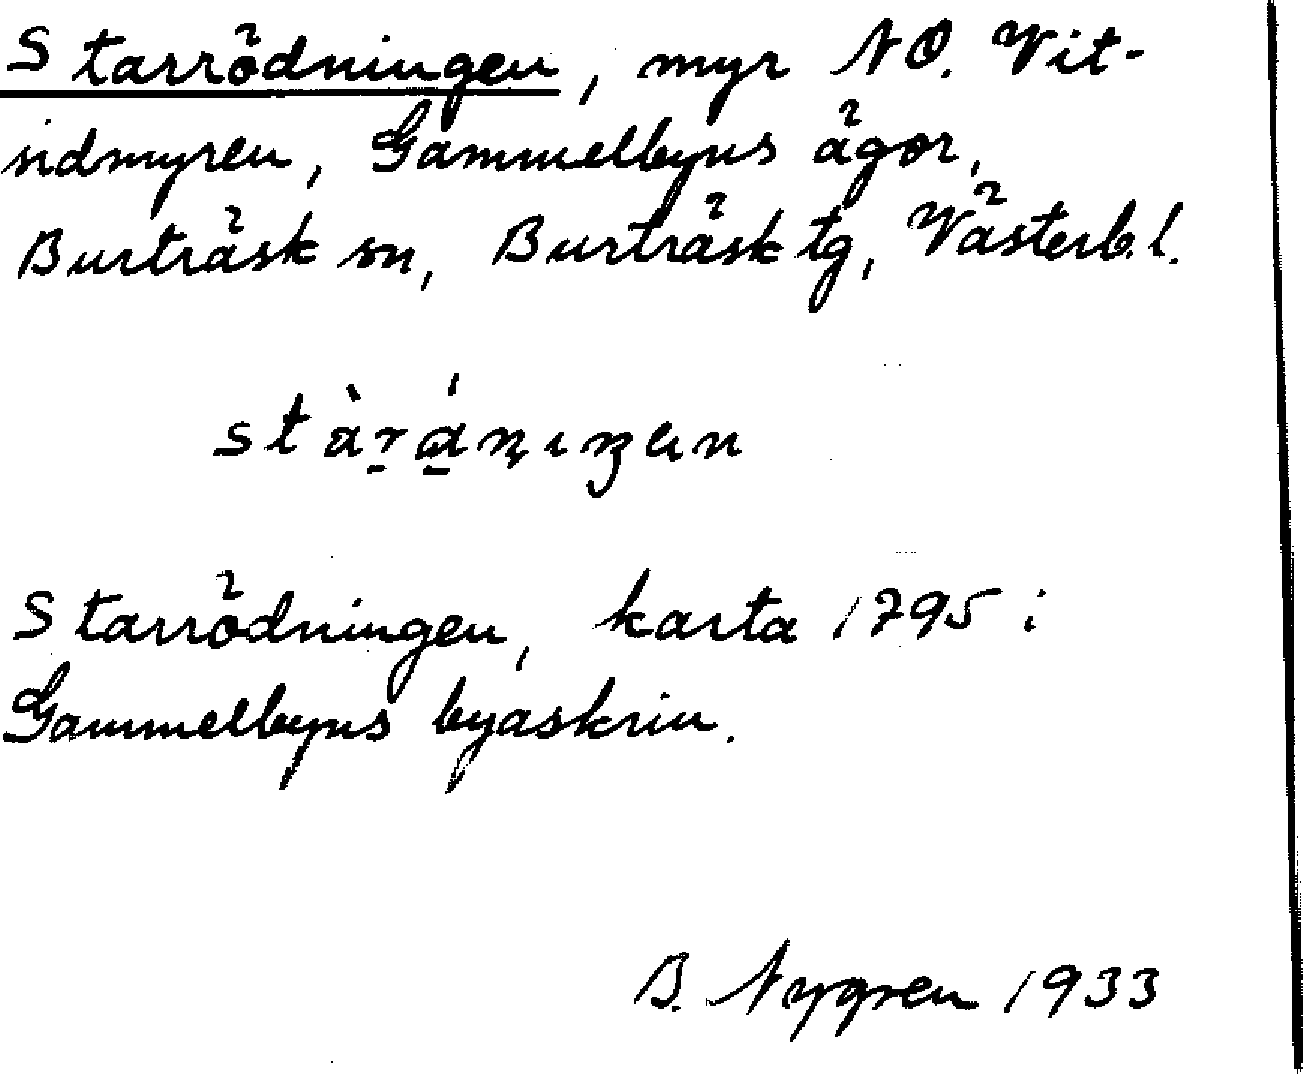 Starrödningen, myr NO. Vit-
sidmyren, Gammelbyns ägor,
Burträsk sn, Burträsk tg, Västerb.l.
Starrödningen, karta 1795 i
Gammelbyns byaskrin.
B. Nygren 1933